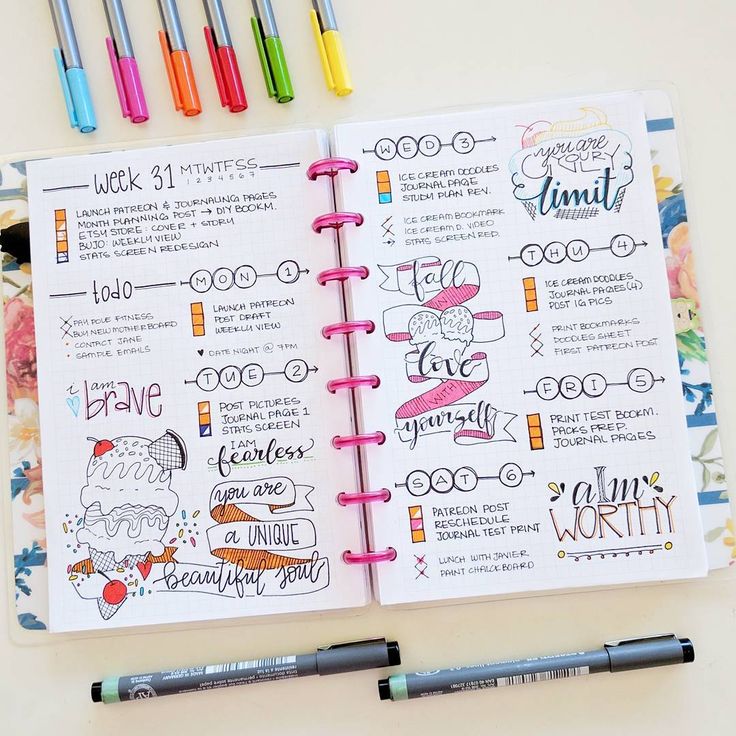 week 31
M T W T F S S
1 2 3 4 5 6 7
LAUNCH PATREON & JOURNALING PAGES
MONTH PLANNING POST → DIY BOOKM.
ETSY STORE: COVER + STORY
BUJO: WEEKLY VIEW
STATS SCREEN REDESIGN
todo
PAY POLE FITNESS
BUY NEW MOTHERBOARD
CONTACT JANE
SAMPLE EMAILS
MON 1
LAUNCH PATREON
POST DRAFT
WEEKLY VIEW
♥ DATE NIGHT @ 7PM
i am
brave
TUE 2
POST PICTURES
JOURNAL PAGE 1
STATS SCREEN
I AM
fearless
you are
a UNIQUE
beautiful soul
WED 3
ICE CREAM DOODLES
JOURNAL PAGE
STUDY PLAN REV.
ICE CREAM BOOKMARK
ICE CREAM D. VIDEO
STATS SCREEN RED.
you are
YOUR
ONLY
limit
fall
IN
love
WITH
yourself
THU 4
ICE CREAM DOODLES
JOURNAL PAGES (4)
POST IG PICS
PRINT BOOKMARKS
DOODLES SHEET
FIRST PATREON POST
FRI 5
PRINT TEST BOOKM.
PACKS PREP.
JOURNAL PAGES
SAT 6
PATREON POST
RESCHEDULE
JOURNAL TEST PRINT
LUNCH WITH JAVIER
PAINT CHALKBOARD
I am
WORTHY
MADE IN GERMANY